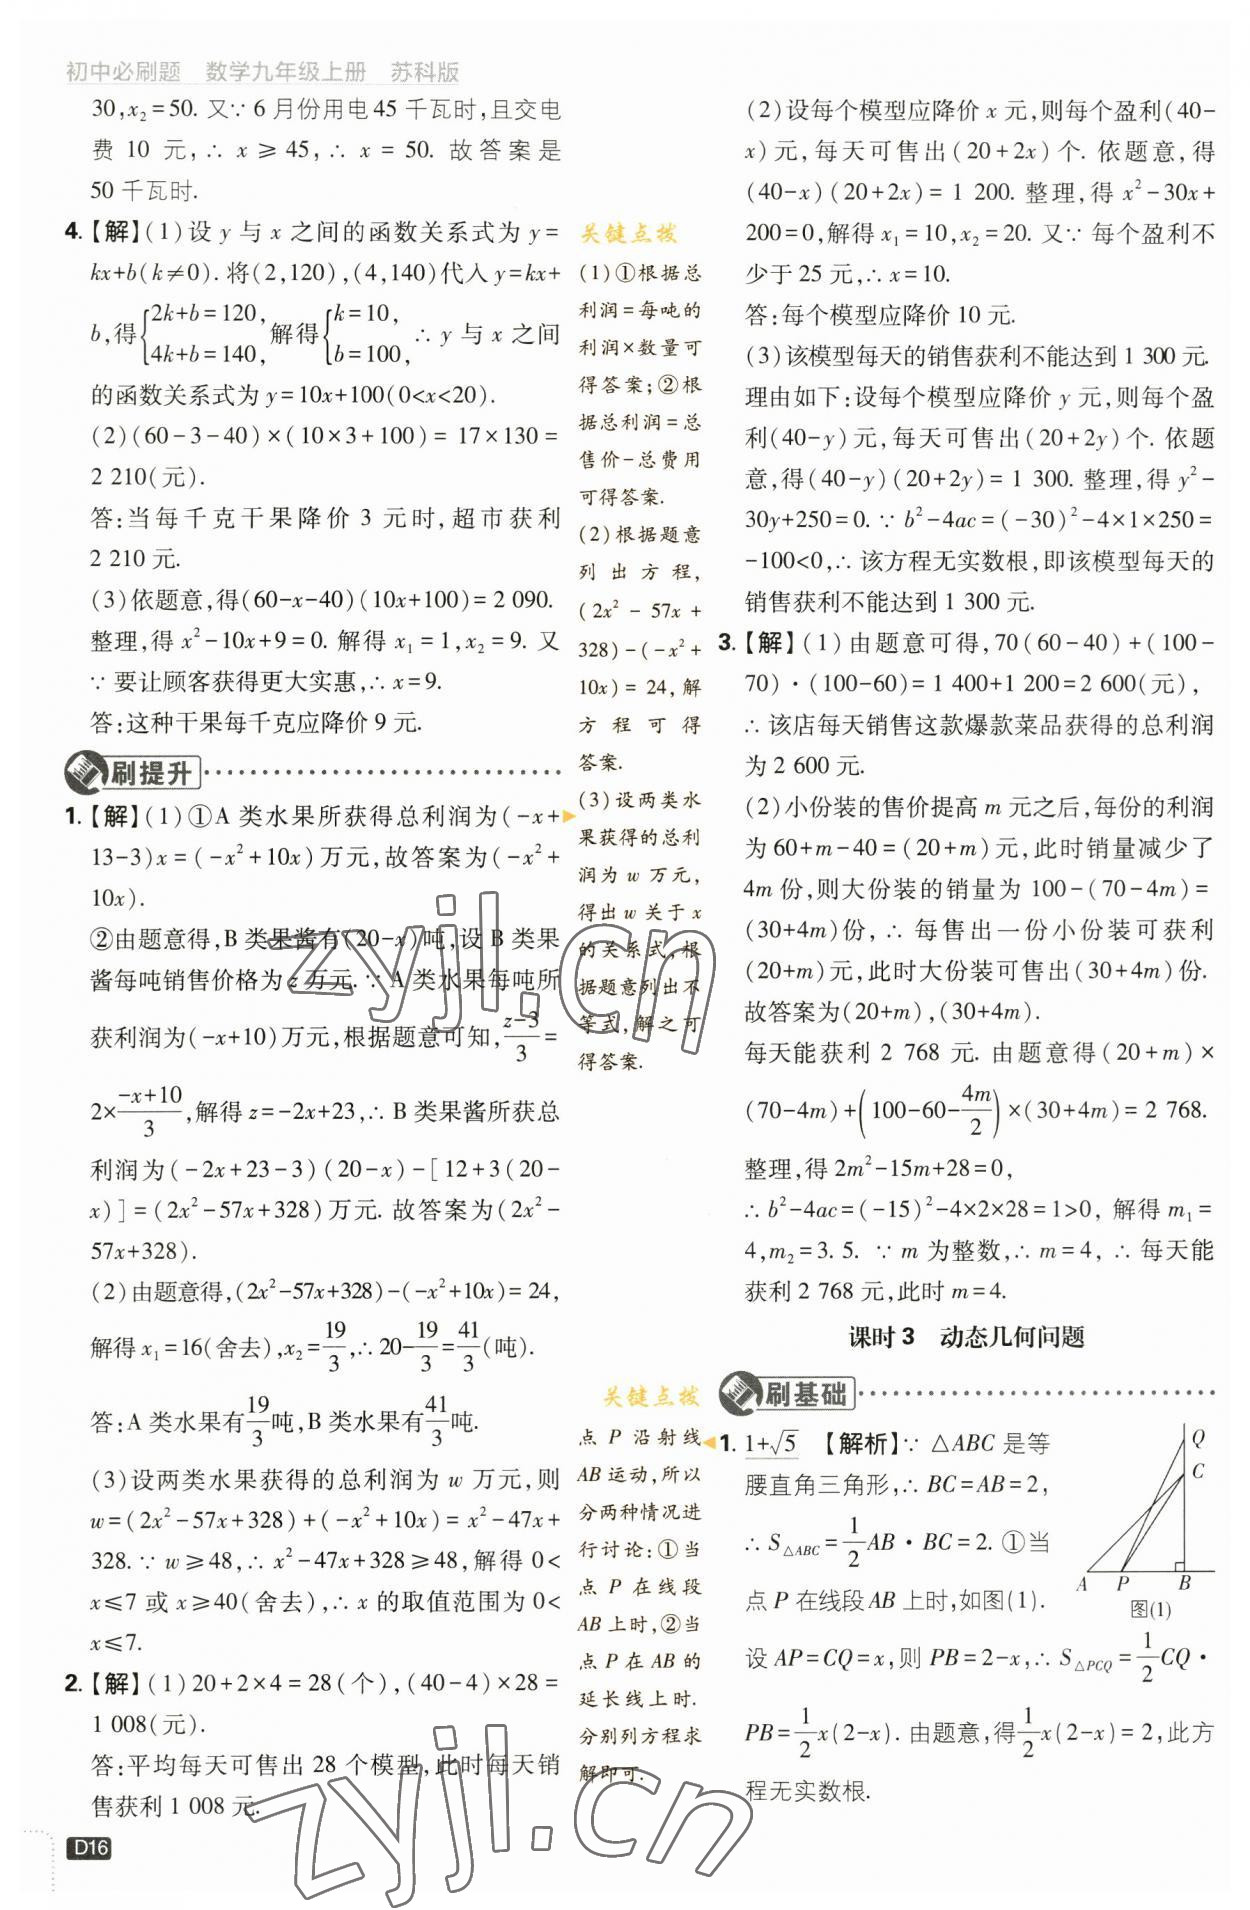 初中必刷题 数学九年级上册 苏科版
30,x₂=50. 又∵ 6 月份用电45 千瓦时,且交电
费 10 元,∴ x ≥ 45,∴ x = 50. 故答案是
50 千瓦时.
4.【解】(1)设 y 与 x 之间的函数关系式为 y=
kx+b(k≠0). 将(2,120),(4,140)代入 y=kx+
b,得{2k+b=120, 4k+b=140, 解得{k=10, b=100, ∴ y 与 x 之间
的函数关系式为 y=10x+100(0<x<20).
(2)(60-3-40)×(10×3+100)= 17×130=
2 210(元).
答:当每千克干果降价 3 元时,超市获利
2 210 元.
(3)依题意,得(60-x-40)(10x+100)=2 090.
整理,得 x²-10x+9=0. 解得 x₁=1,x₂=9. 又
∵ 要让顾客获得更大实惠,∴ x=9.
答:这种干果每千克应降价 9 元.
刷提升
1.【解】(1)①A 类水果所获得总利润为(-x+
13-3)x=(-x²+10x)万元,故答案为(-x²+
10x).
②由题意得,B 类果酱有(20-x)吨,设 B 类果
酱每吨销售价格为 z 万元. ∵ A 类水果每吨所
获利润为(-x+10)万元,根据题意可知,(z-3)/3=
2×(-x+10)/3,解得 z=-2x+23,∴ B 类果酱所获总
利润为(-2x+23-3)(20-x)-[12+3(20-
x)]=(2x²-57x+328)万元. 故答案为(2x²-
57x+328).
(2)由题意得,(2x²-57x+328)-(-x²+10x)=24,
解得 x₁=16(舍去),x₂=19/3,∴ 20-19/3=41/3(吨).
答:A 类水果有19/3吨,B 类水果有41/3吨.
(3)设两类水果获得的总利润为 w 万元,则
w=(2x²-57x+328)+(-x²+10x)=x²-47x+
328. ∵ w≥48,∴ x²-47x+328≥48,解得 0<
x≤7 或 x≥40(舍去),∴ x 的取值范围为 0<
x≤7.
2.【解】(1)20+2×4=28(个),(40-4)×28=
1 008(元).
答:平均每天可售出 28 个模型,此时每天销
售获利 1 008 元.
D16
关键点拨
(1)①根据总
利润=每吨的
利润×数量可
得答案;②根
据总利润=总
售价-总费用
可得答案.
(2)根据题意
列出方程,
(2x²-57x+
328)-(-x²+
10x)=24,解
方程可得
答案.
(3)设两类水
果获得的总利
润为 w 万元,
得出 w 关于 x
的关系式,根
据题意列出不
等式,解之可
得答案.
关键点拨
点 P 沿射线
AB运动,所以
分两种情况进
行讨论:①当
点 P 在线段
AB上时,②当
点 P 在 AB 的
延长线上时.
分别列方程求
解即可.
(2)设每个模型应降价 x 元,则每个盈利(40-
x)元,每天可售出(20+2x)个. 依题意,得
(40-x)(20+2x)=1 200. 整理,得 x²-30x+
200=0,解得 x₁=10,x₂=20. 又∵ 每个盈利不
少于 25 元,∴ x=10.
答:每个模型应降价 10 元.
(3)该模型每天的销售获利不能达到 1 300 元.
理由如下:设每个模型应降价 y 元,则每个盈
利(40-y)元,每天可售出(20+2y)个. 依题
意,得(40-y)(20+2y)=1 300. 整理,得 y²-
30y+250=0. ∵ b²-4ac=(-30)²-4×1×250=
-100<0,∴ 该方程无实数根,即该模型每天的
销售获利不能达到 1 300 元.
3.【解】(1)由题意可得,70(60-40)+(100-
70)·(100-60)=1 400+1 200=2 600(元),
∴ 该店每天销售这款爆款菜品获得的总利润
为 2 600 元.
(2)小份装的售价提高 m 元之后,每份的利润
为 60+m-40=(20+m)元,此时销量减少了
4m 份,则大份装的销量为 100-(70-4m)=
(30+4m)份,∴ 每售出一份小份装可获利
(20+m)元,此时大份装可售出(30+4m)份.
故答案为(20+m),(30+4m).
每天能获利 2 768 元. 由题意得(20+m)×
(70-4m)+(100-60-4m/2)×(30+4m)=2 768.
整理,得 2m²-15m+28=0,
∴ b²-4ac=(-15)²-4×2×28=1>0, 解得 m₁=
4,m₂=3.5. ∵ m 为整数,∴ m=4, ∴ 每天能
获利 2 768 元,此时 m=4.
课时 3 动态几何问题
刷基础
1. 1+√5 【解析】∵ △ABC 是等
腰直角三角形,∴ BC=AB=2,
∴ S△ABC=1/2AB·BC=2. ①当
点 P 在线段 AB 上时,如图(1).
设 AP=CQ=x,则 PB=2-x,∴ S△PCQ=1/2CQ·
PB=1/2x(2-x). 由题意,得1/2x(2-x)=2,此方
程无实数根.
Q
C
A P B
图(1)
zyjl.cn
zyjl.cn